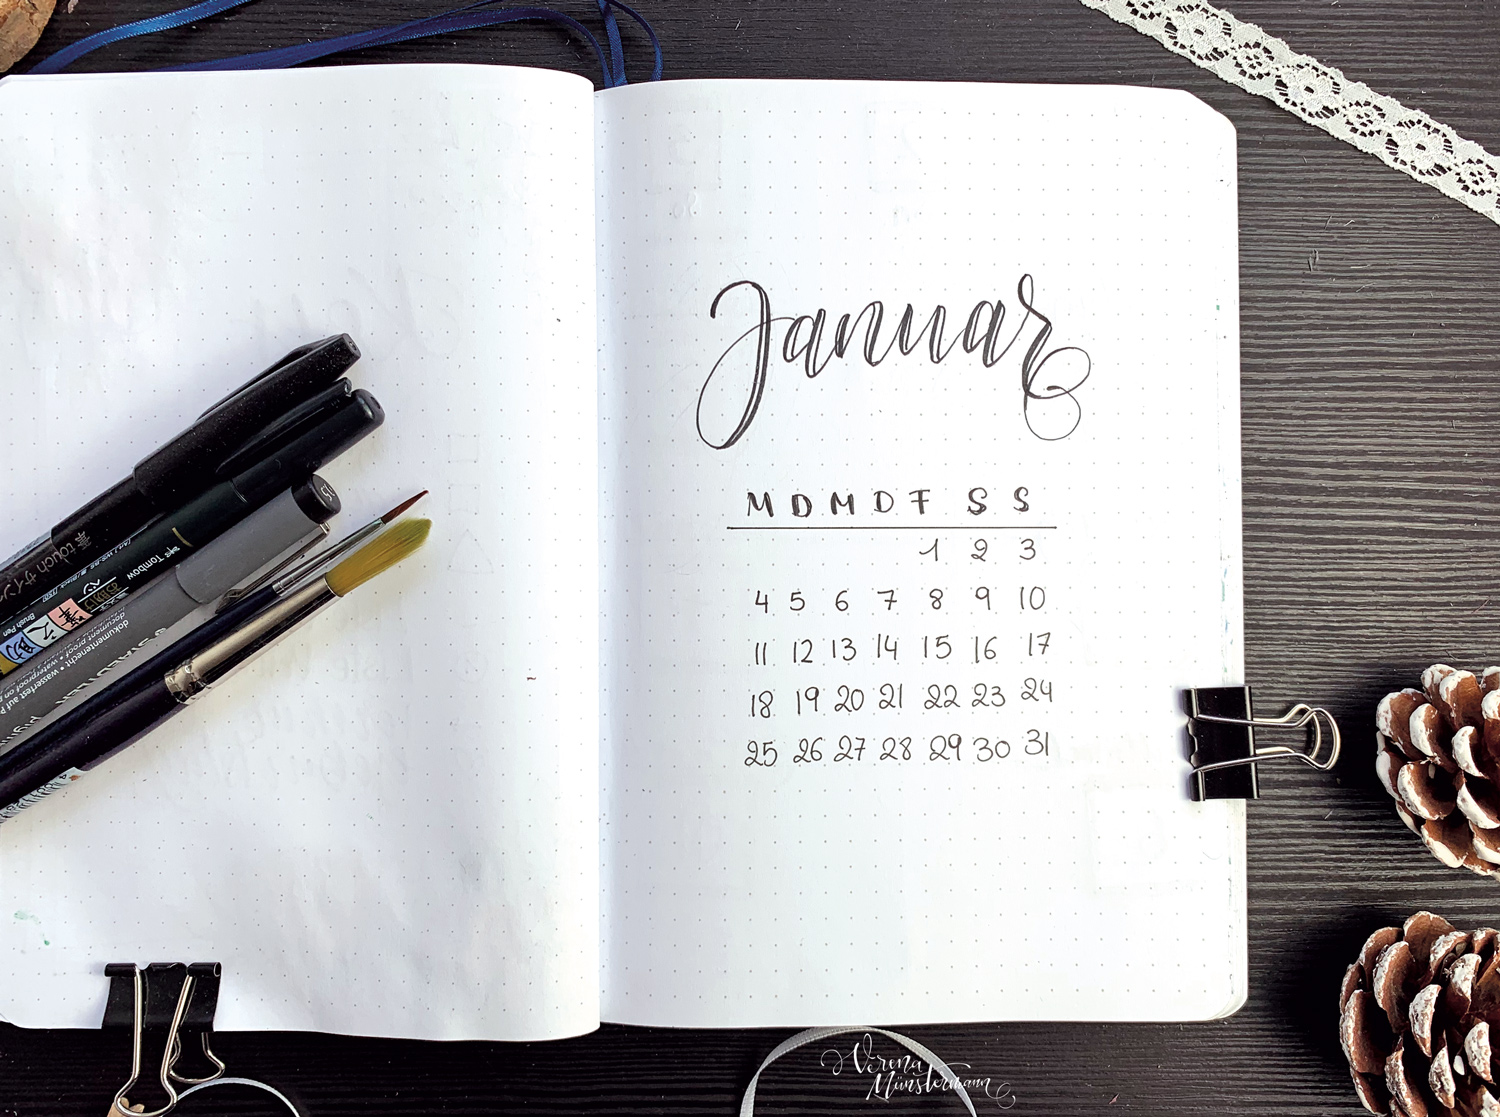 Januar
M D M D F S S
1 2 3
4 5 6 7 8 9 10
11 12 13 14 15 16 17
18 19 20 21 22 23 24
25 26 27 28 29 30 31
touch
Tombow
Brush Pen
dokumentenecht
document proof
Verena
Münstermann